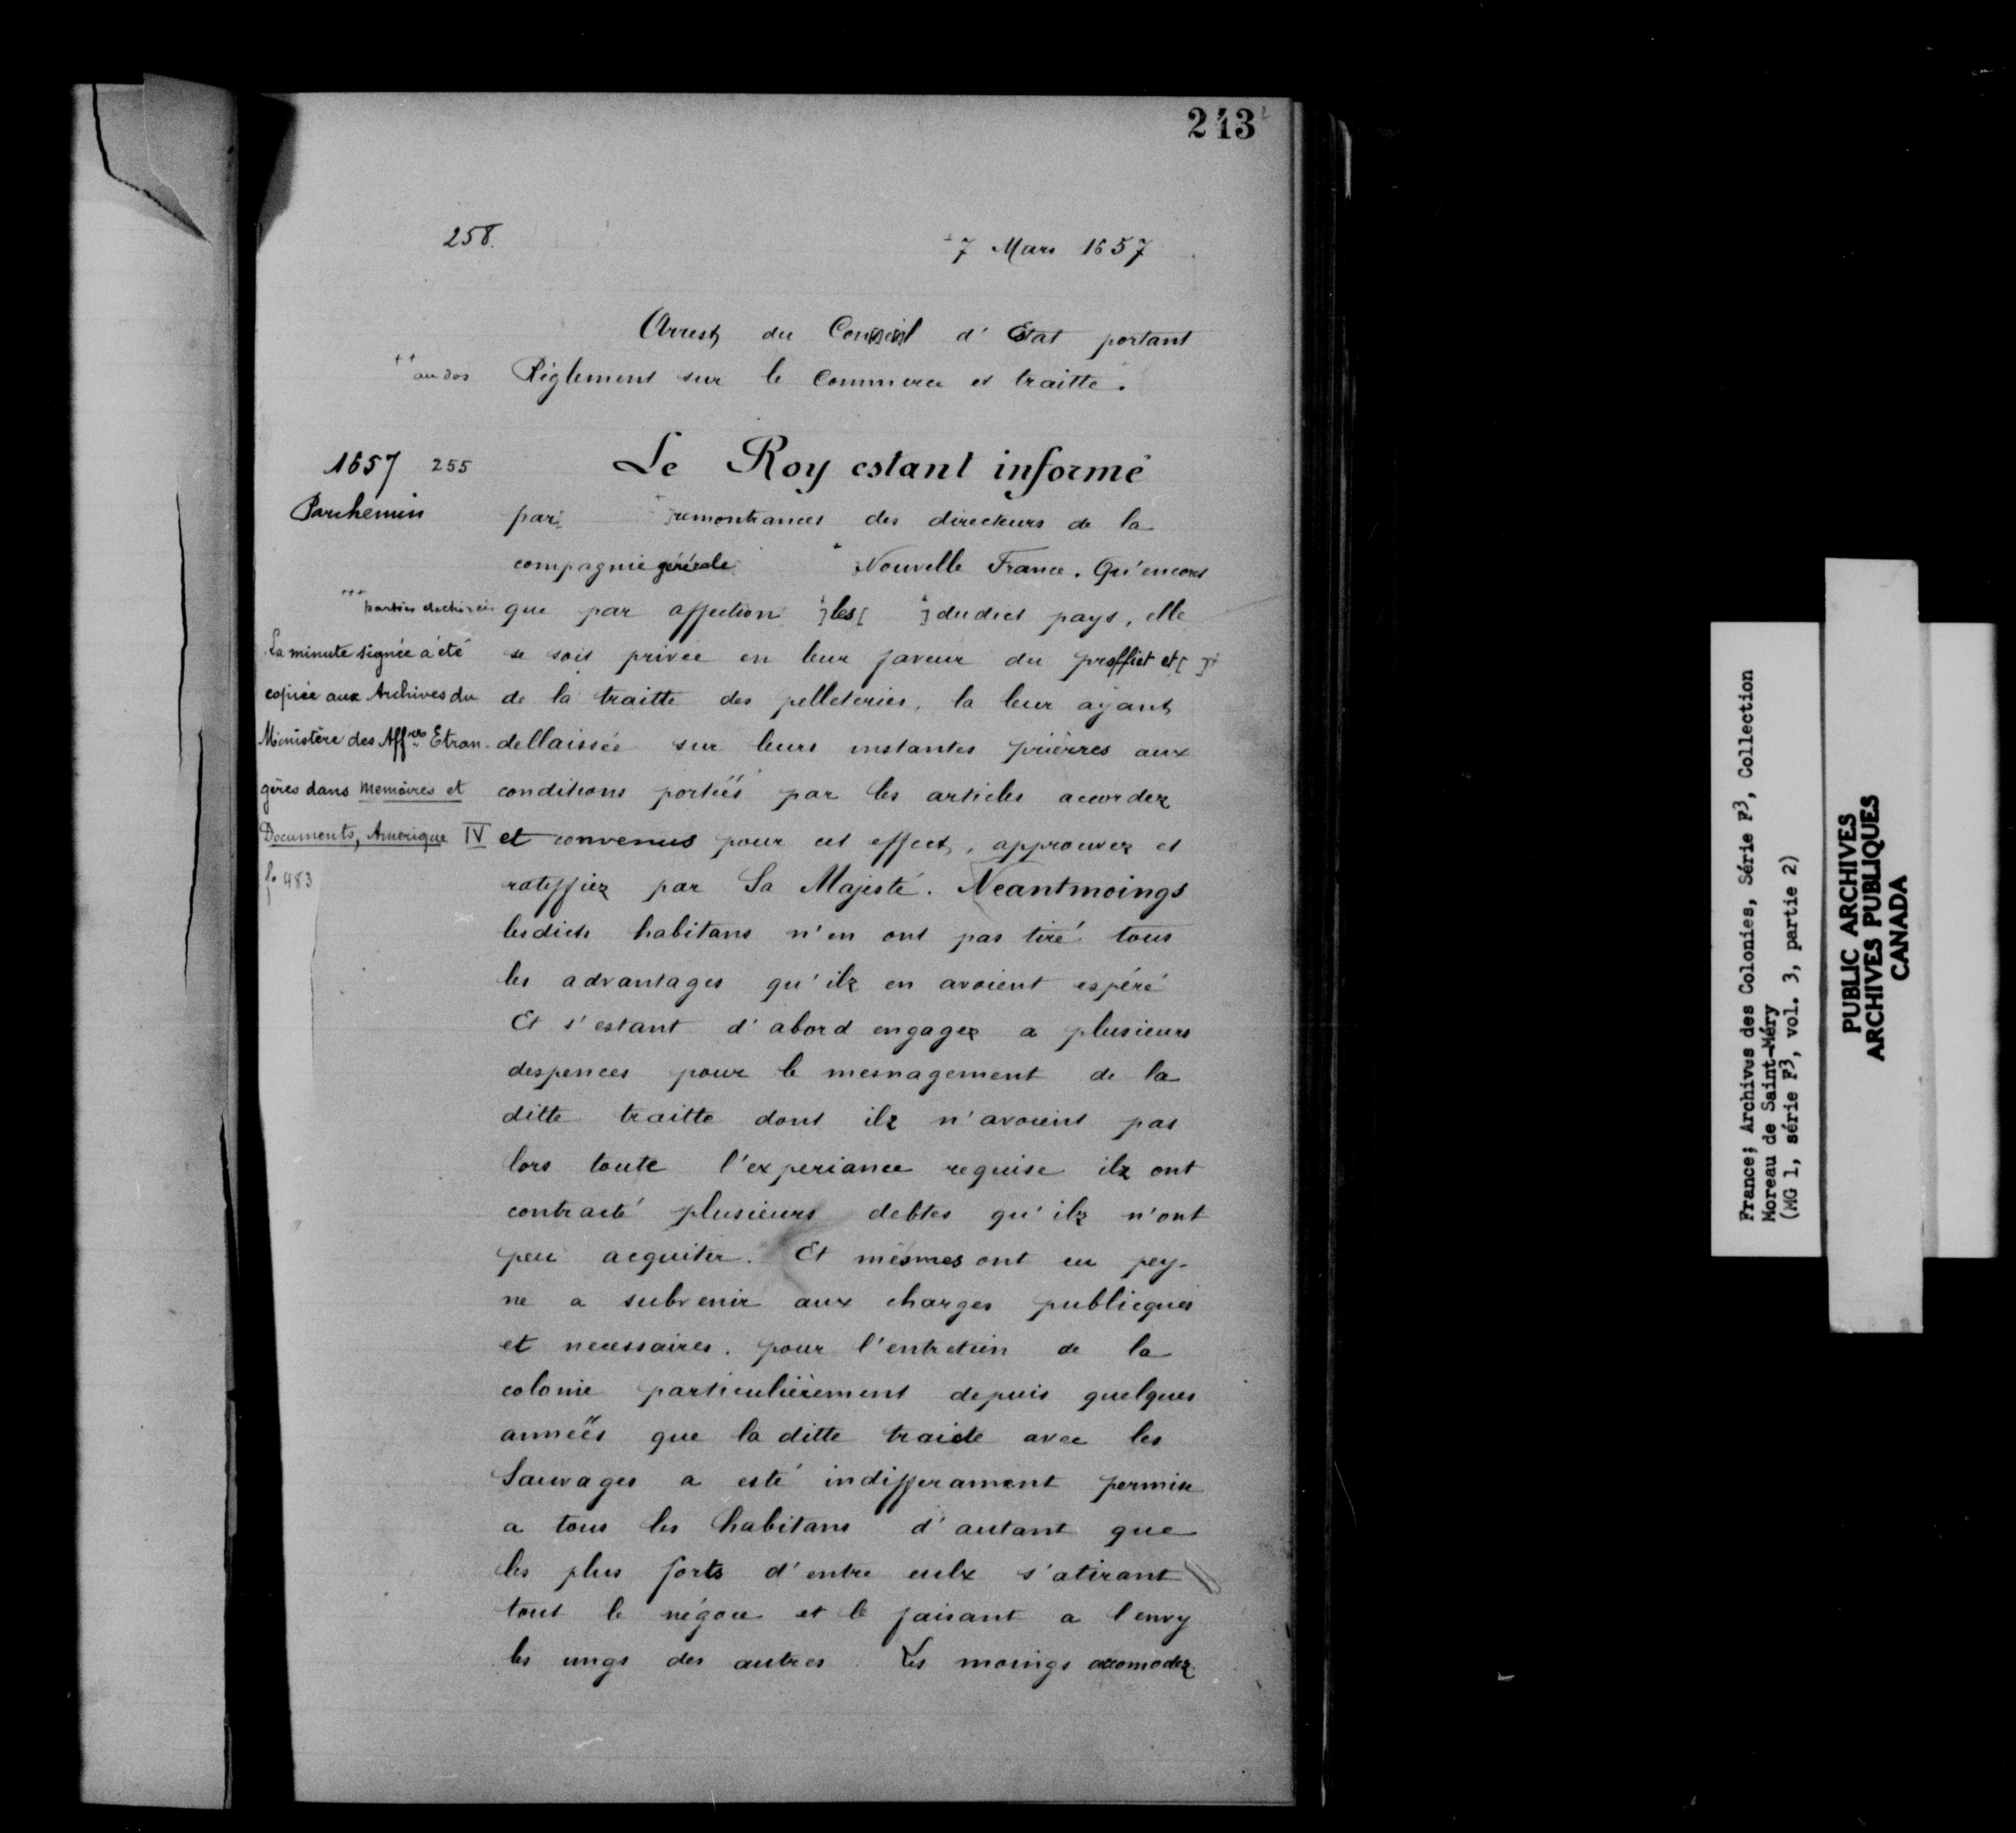 243
258.
7 Mars 1657
Arrest du Conseil d'Estat portant
++ au dos
Règlement sur le Commerce et traitte.
1657 255
Le Roy estant informé
Parchemin
par remontrances des directeurs de la
compagnie générale Nouvelle France. Qu'encores
+++ parties déchirées
que par affection ] les [ ] dudict pays, elle
La minute signée a été
se soit privée en leur faveur du proffict et [ ]
copiée aux Archives du
de la traitte des pelleteries, la leur ayant
Ministère des Aff.res Etran-
dellaissée sur leurs instantes prièrres aux
gères dans Memoires et
conditions portéés par les articles accordez
Documents, Amerique IV
et convenus pour cet effect, approuvez et
fo 483
ratiffiez par Sa Majesté. Neantmoings
lesdicts habitans n'en ont pas tiré tous
les advantages qu'ilz en avoient espéré
Et s'estant d'abord engagez a plusieurs
despences pour le mesnagement de la
ditte traitte dont ilz n'avoient pas
lors toute l'experiance requise ilz ont
contracté plusieurs debtes qu'ilz n'ont
peu acquiter. Et mesmes ont eu pey-
ne a subvenir aux charges publicques
et necessaires. pour l'entretien de la
colonie particulièrement depuis quelques
annéés que la ditte traicte avec les
Sauvages a esté indifferament permise
a tous les habitans d'autant que
les plus forts d'entre eulx s'atirant
tout le négoce et le faisant a l'envy
les ungs des autres Les moings accomodez
France; Archives des Colonies, Série F3, Collection
Moreau de Saint-Méry
(MG 1, série F3, vol. 3, partie 2)
PUBLIC ARCHIVES
ARCHIVES PUBLIQUES
CANADA